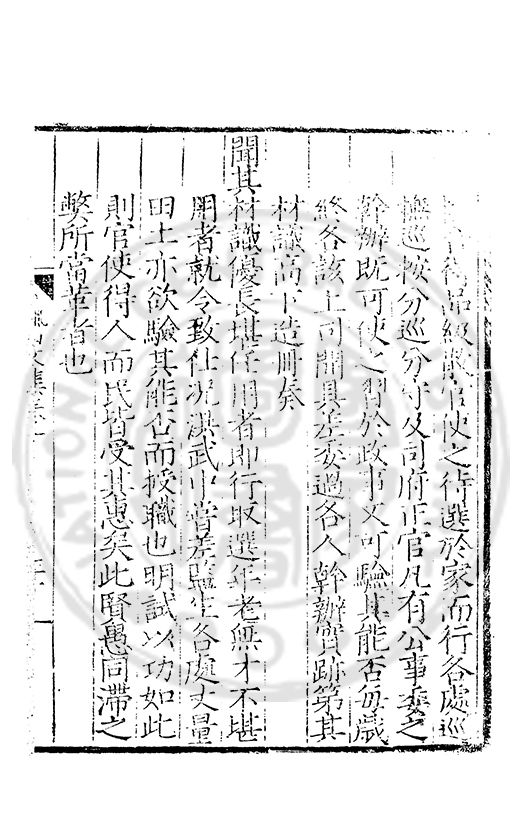 品級散官使之待選於家而行各處巡
撫巡按分巡分守及司府正官凡有公事委之
幹辦既可使之習於政事又可驗其能否每歲
終各該上司開具差委過各人幹辦實跡第其
材識高下造冊奏
聞其材識優長堪任用者即行取選年老無才不堪
用者就令致仕况洪武中曾差監生各處丈量
田土亦欲驗其能否而授職也明試以功如此
則官使得人而民皆受其惠矣此賢愚同滯之
弊所當革者也
文集卷一